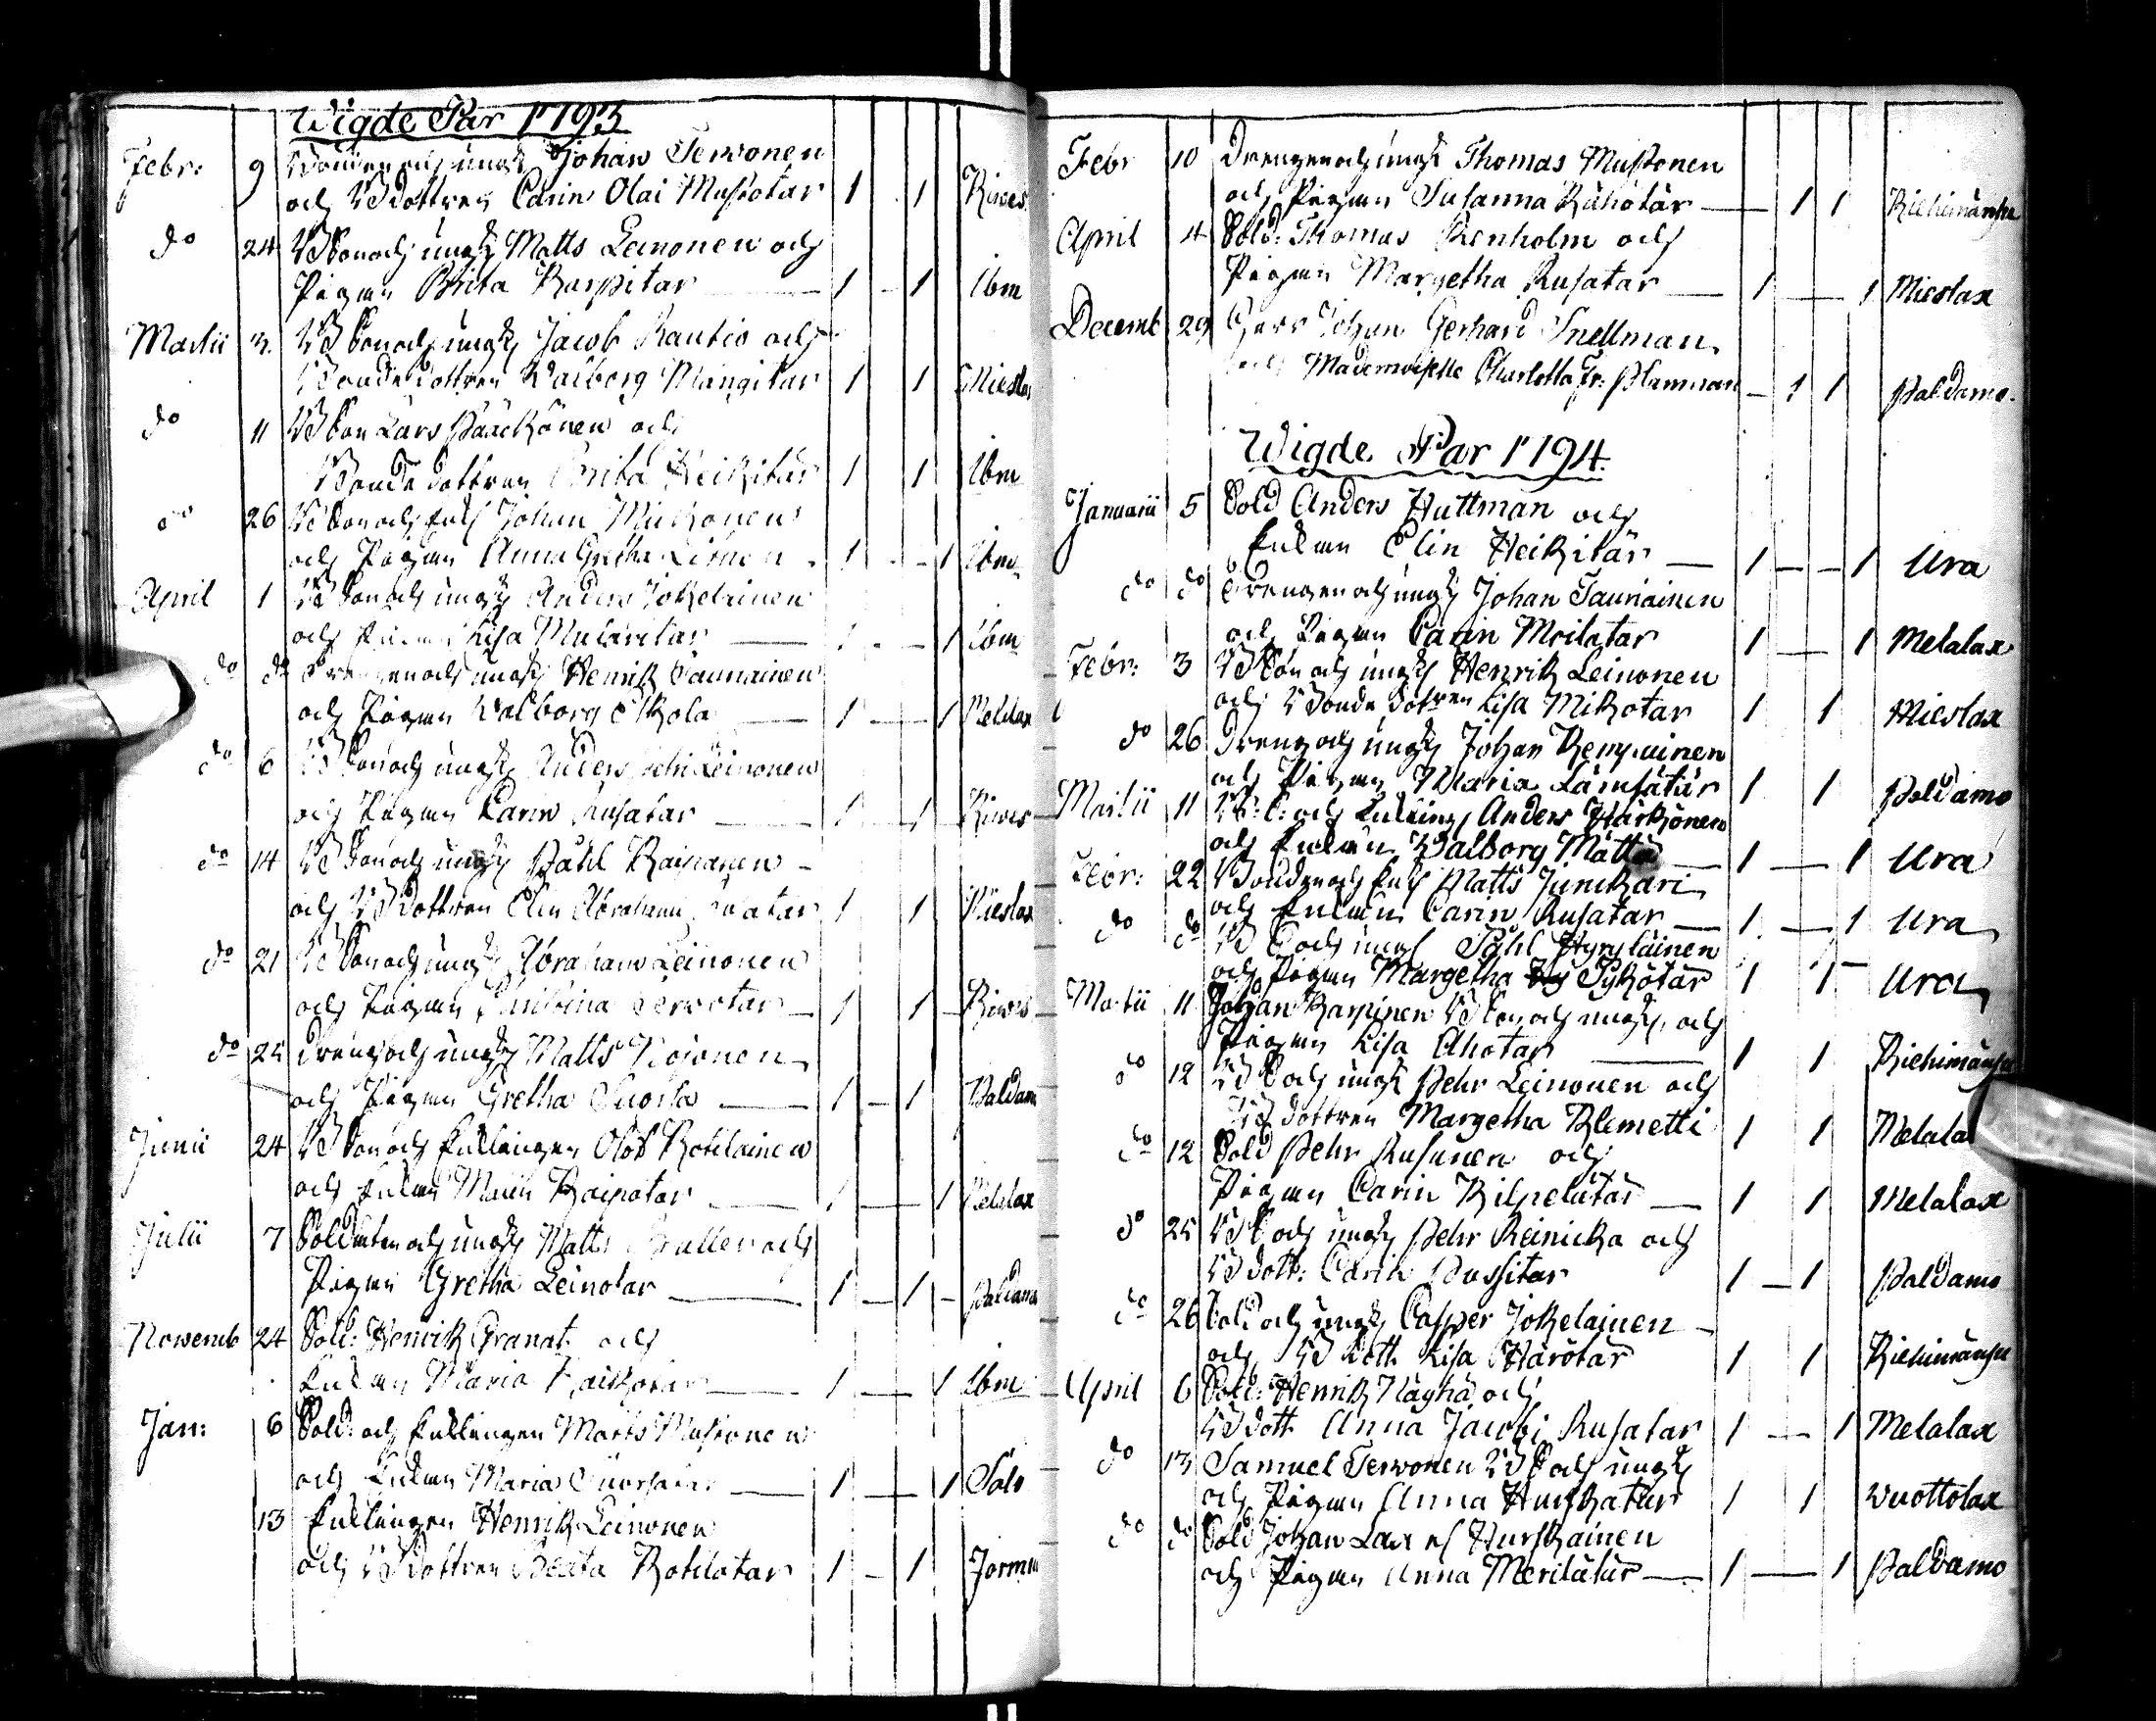 Wigde Par 1793
Febr: 9 Bonden och ungk Johan Terwonen
och B dottren Carin Olai Mustotar 1 1 Kives
do 24 B Son och ungk Matts Leinonen och
Pigan Brita Karpitar 1 1 Ibm
Martii 3. B Son och ungk Jacob Rautio och
Bonde dottren Walborg Mångitar 1 1 Mieslax
do 11 B Son Lars Pääckönen och
Bonde dottren Brita Heikitar 1 1 Ibm
do 26 B Son och Enkl Johan Mickonen
och Pigan Anna Gretha 1 1 Ibm
April 1 B Son och ungk Anders Jokelainen
och Pigan Lisa 1 1 Ibm
do do Drengen och ungk Henrik Tauriainen
och Pigan Walborg Ekola 1 1 Melalax
do 6 B Son och ungk Anders Leinonen
och Pigan Carin Rusatar 1 1 Kives
do 14 B Son och ungk Påhl Kaipanen
och B dottren Elin Abrahami 1 1 Mieslax
do 21 B Son och ungk Abraham Leinonen
och Pigan Terwotar 1 1 Kives
do 25 Dreng och ungk Matts
och Pigan Gretha Suorsa 1 1 Paldamo
Junii 24 B Son och Enklingen Olof Kotilainen
och Enkan Malin Kaipatar 1 1 Melalax
Julii 7 Soldaten och ungk Matts och
Pigan Gretha Leinotar 1 1 Paldamo
Novemb 24 Sold: Henrik Granat och
Enkan Maria 1 1 Ibm
Jan: 6 Sold: och Enklingen Matts Mustonen
och Enkan Maria 1 1 Salo
13 Enklingen Henrik Leinonen
och B dottren Beata Kotilatar 1 1 Jormua
Febr 10 Drengen och ungk Thomas Mustonen
och Pigan Susanna Rähötär 1 1 Kiehimänsu
April 4 Sold: Thomas Renholm och
Pigan Margetha Rusatar 1 1 Mieslax
Decemb 29 Herr Johan Gerhard Snellman
och Mademoiselle Charlotta Fr: Plamman 1 1 Paldamo.
Wigde Par 1794.
Januarii 5 Sold Anders Huttman och
Enkan Elin Heikitär 1 1 Ura
do do Drengen och ungk Johan Tauriainen
och Pigan Carin Moilatar 1 1 Melalax
Febr: 3 B Son och ungk Henrik Leinonen
och Bonde dotren Lisa Mikotar 1 1 Mieslax
do 26 Dreng och ungk Johan Kempainen
och Pigan Maria Lämsätär 1 1 Paldamo
Martii 11 B: S: och Enkling Anders Härkönen
och Enkan Walborg Mätta 1 1 Ura
Febr: 22 Bonden och Enkl Matts Junckari
och Enkan Carin Rusatar 1 1 Ura
do do B S och ungk Påhl Hyryläinen
och Pigan Margetha Pykötär 1 1 Ura
Martii 11 Johan Karpinen B Son och ungk, och
Pigan Lisa Ahotar 1 1 Kiehimänsu
do 12 B S och ungk Pehr Leinonen och
B dottren Margetha Klemetti 1 1 Melala
do 12 Sold Pehr Rusanen och
Pigan Carin Kilpelätär 1 1 Melalax
do 25 B S och ungk Pehr Reinicka och
B dott: Carin Pussitar 1 1 Paldamo
do 26 Sold och ungk Casper Jokelainen
och B dott Lisa Härötär 1 1 Kiehimänsu
April 6 Sold: Henrik Nägha och
B dott Anna Jacobi Rusatar 1 1 Melalax
do 13 Samuel Terwonen B S och ungk
och Pigan Anna Hurskatar 1 1 Wuottolax
do do Sold Johan Lax el Hurskainen
och Pigan Anna Merilätär 1 1 Paldamo